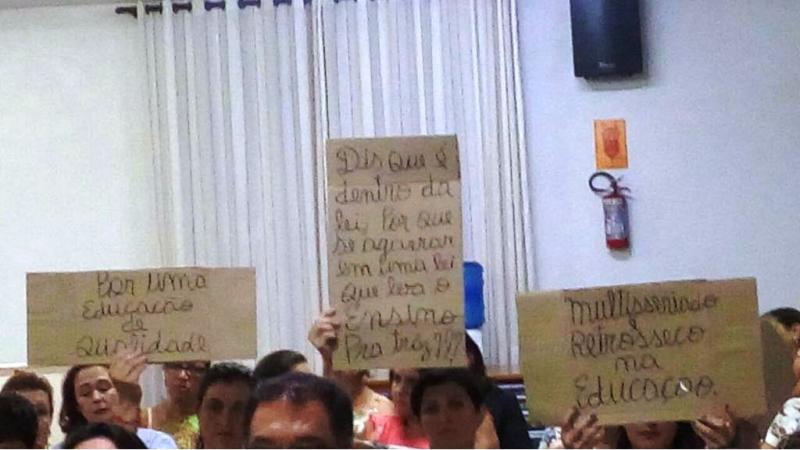 Por uma
Educação
de
Qualidade
Dis que é
dentro da
lei, Por que
se agarrar
em uma lei
que leva o
Ensino
Pra tráz???
Multisseriado
é
RetroSseco
na
Educação.